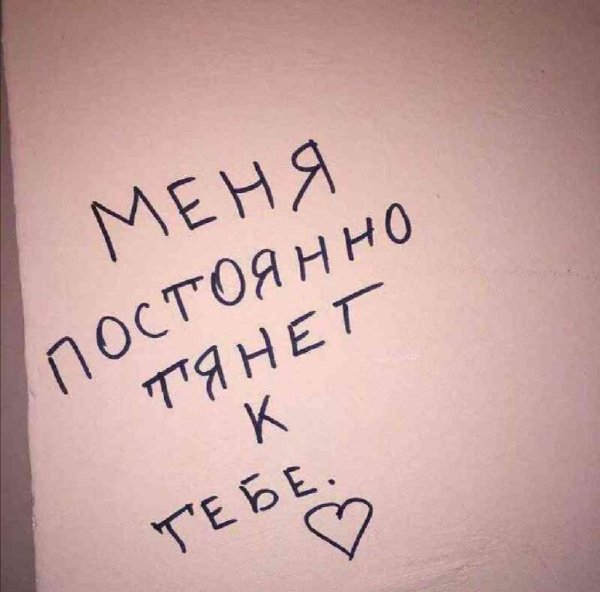 МЕНЯ
ПОСТОЯННО
ТЯНЕТ
К
ТЕБЕ. ♡